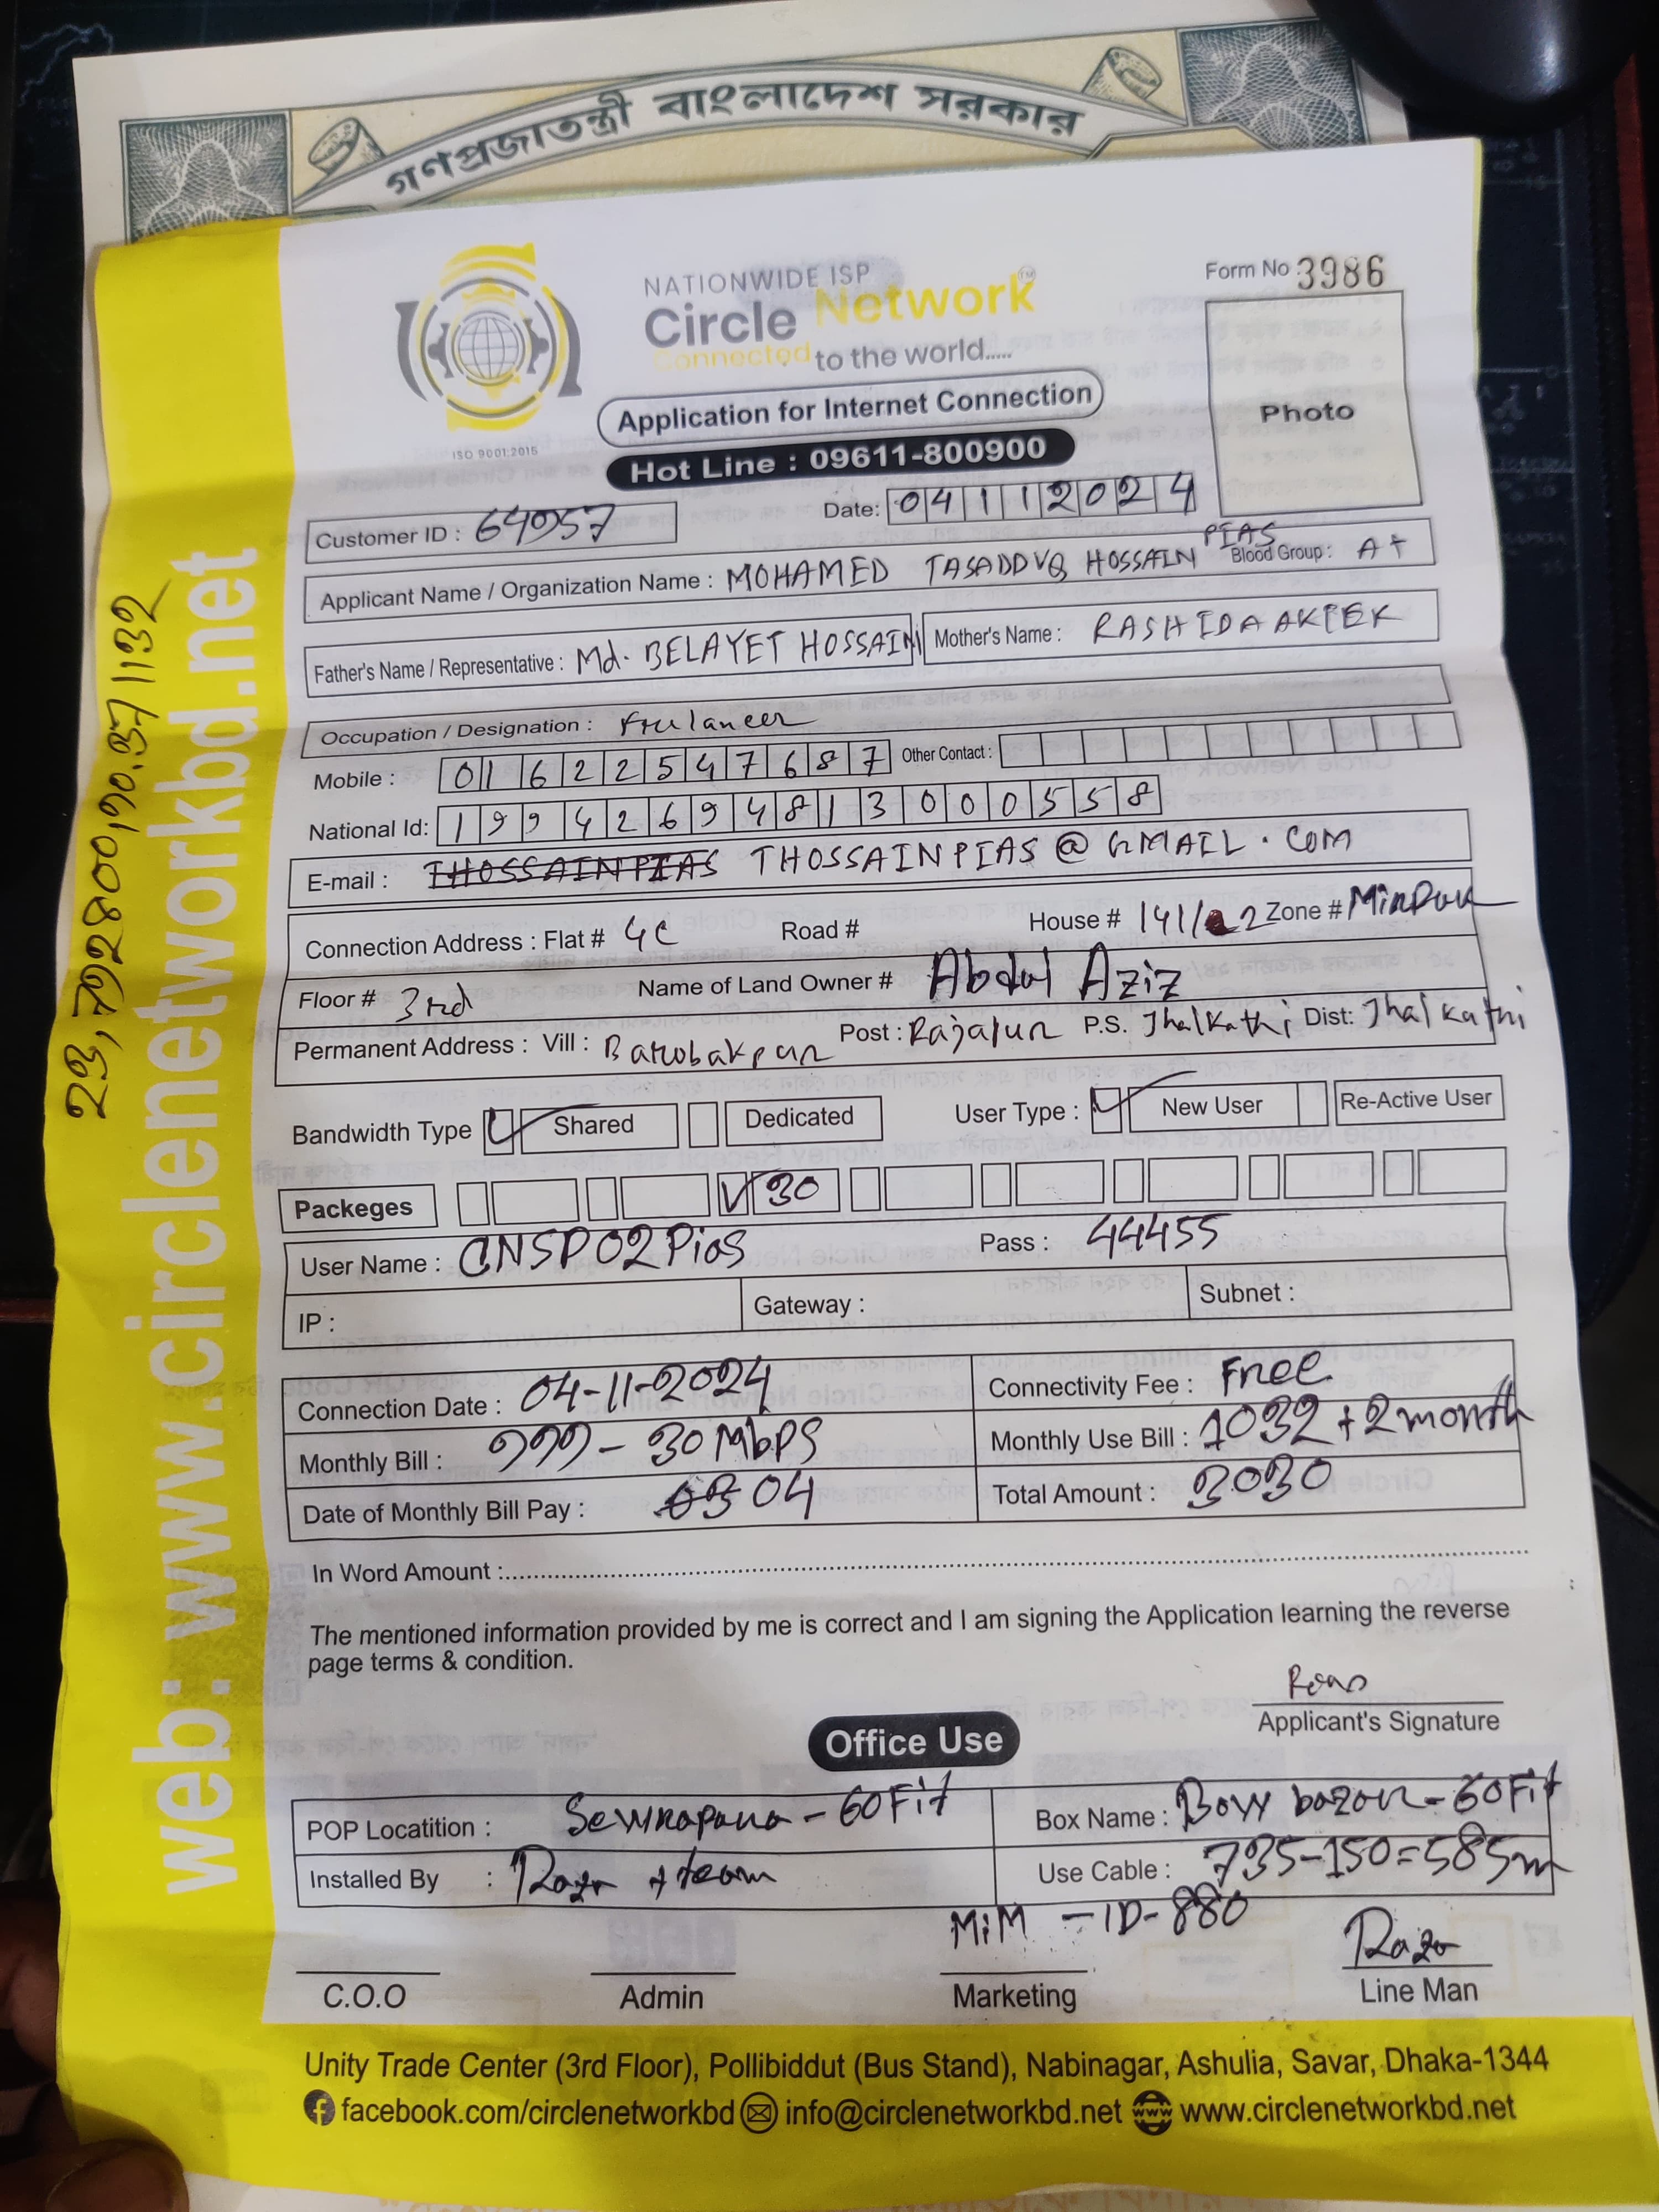 গণপ্রজাতন্ত্রী বাংলাদেশ সরকার
NATIONWIDE ISP
Circle Network™
Connected to the world.....
ISO 9001:2015
Form No 3986
Photo
Application for Internet Connection
Hot Line : 09611-800900
Customer ID : 64957 Date: 04112024
Applicant Name / Organization Name : MOHAMED TASADDUQ HOSSAIN PIAS Blood Group : A+
Father's Name / Representative : Md. BELAYET HOSSAIN Mother's Name : RASHIDA AKTER
Occupation / Designation : Freelancer
Mobile : 01622547687 Other Contact :
National Id: 19942694813000558
E-mail : THOSSAINPIAS THOSSAINPIAS @ GMAIL . COM
Connection Address : Flat # 4C Road # House # 141/2 Zone # Mirpur
Floor # 3rd Name of Land Owner # Abdul Aziz
Permanent Address : Vill : Barobakpur Post : Rajapur P.S. Jhalkathi Dist: Jhalkathi
Bandwidth Type Shared Dedicated User Type : New User Re-Active User
Packeges 30
User Name : CNSP02Pias Pass : 44455
IP : Gateway : Subnet :
Connection Date : 04-11-2024 Connectivity Fee : Free
Monthly Bill : 999 - 30 Mbps Monthly Use Bill : 1032 + 2 month
Date of Monthly Bill Pay : 03 04 Total Amount : 3030
In Word Amount :
The mentioned information provided by me is correct and I am signing the Application learning the reverse
page terms & condition.
Applicant's Signature
Office Use
POP Locatition : Sewrapara - 60 Fit Box Name : Bow bazar - 60 Fit
Installed By : Razu + team Use Cable : 735-150=585m
MiM - ID - 880 Razu
C.O.O Admin Marketing Line Man
Unity Trade Center (3rd Floor), Pollibiddut (Bus Stand), Nabinagar, Ashulia, Savar, Dhaka-1344
facebook.com/circlenetworkbd info@circlenetworkbd.net www.circlenetworkbd.net
web: www.circlenetworkbd.net